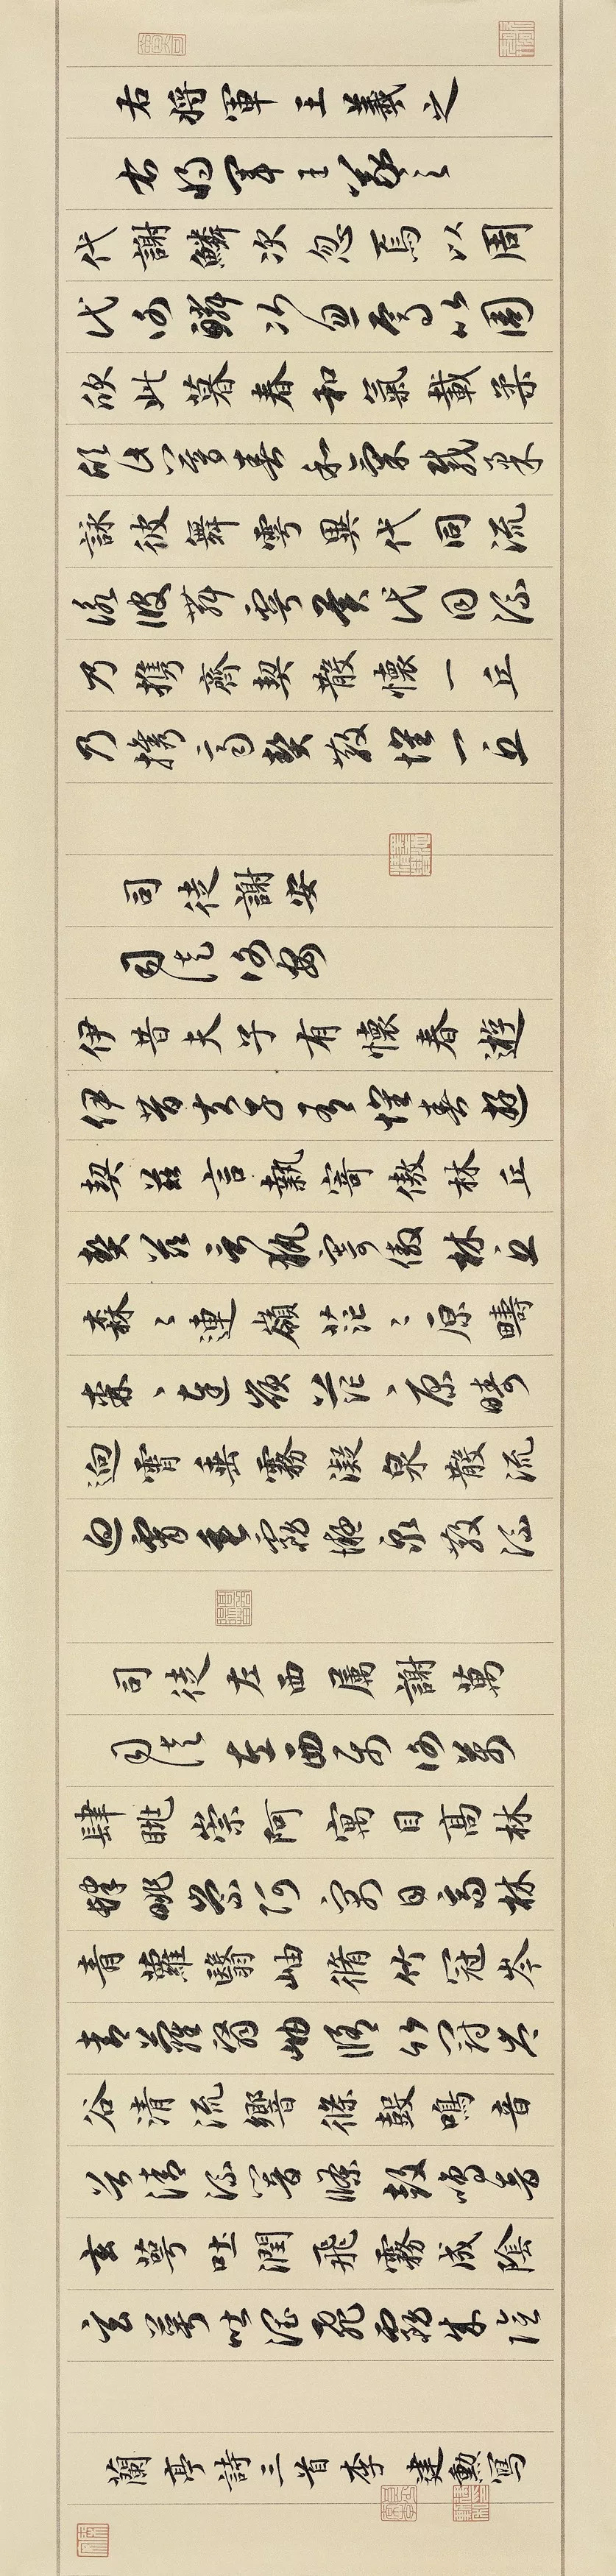 右將軍王羲之
右將軍王羲之
代謝鱗次忽焉以周
代謝鱗次忽焉以周
欣此暮春和氣載柔
欣此暮春和氣載柔
詠彼舞雩異代同流
詠彼舞雩異代同流
乃攜齊契散懷一丘
乃攜齊契散懷一丘
司徒謝安
司徒謝安
伊昔夫子有懷春遊
伊昔夫子有懷春遊
契茲言執寄傲林丘
契茲言執寄傲林丘
森〻連嶺茫〻原疇
森〻連嶺茫〻原疇
迥霄垂霧凝泉散流
迥霄垂霧凝泉散流
司徒左西屬謝萬
司徒左西屬謝萬
肆眺崇阿寓目高林
肆眺崇阿寓目高林
青蘿翳岫脩竹冠岑
青蘿翳岫脩竹冠岑
谷清流響條鼓鳴音
谷清流響條鼓鳴音
玄萼吐潤飛霧成陰
玄萼吐潤飛霧成陰
蘭亭詩三首李建勳寫